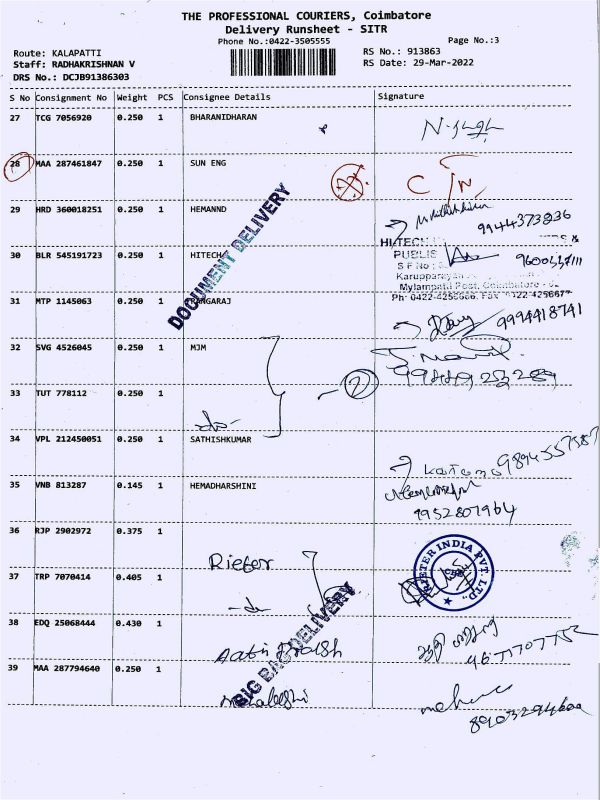 THE PROFESSIONAL COURIERS, Coimbatore
Delivery Runsheet - SITR
Phone No.:0422-3505555
Page No.:3
Route: KALAPATTI
RS No.: 913863
Staff: RADHAKRISHNAN V
RS Date: 29-Mar-2022
DRS No.: DCJB91386303
S No Consignment No Weight PCS Consignee Details Signature
27 TCG 7056920 0.250 1 BHARANIDHARAN
28 MAA 287461847 0.250 1 SUN ENG
29 HRD 360018251 0.250 1 HEMANND
9944373836
30 BLR 545191723 0.250 1 HITECH
HI-TECH
PUBLIS
S F No
Karupparayan
Mylampatti Post, Coimbatore - 62
Ph: 0422-4256666, Fax
DOCUMENT DELIVERY
31 MTP 1145063 0.250 1 RANGARAJ
9994418741
32 SVG 4526045 0.250 1 MJM
33 TUT 778112 0.250 1
2
-do-
34 VPL 212450051 0.250 1 SATHISHKUMAR
35 VNB 813287 0.145 1 HEMADHARSHINI
9952807964
36 RJP 2902972 0.375 1 Rieter
RIETER INDIA PVT. LTD.,
37 TRP 7070414 0.405 1
38 EDQ 25068444 0.430 1
BIG BAG DELIVERY
39 MAA 287794640 0.250 1